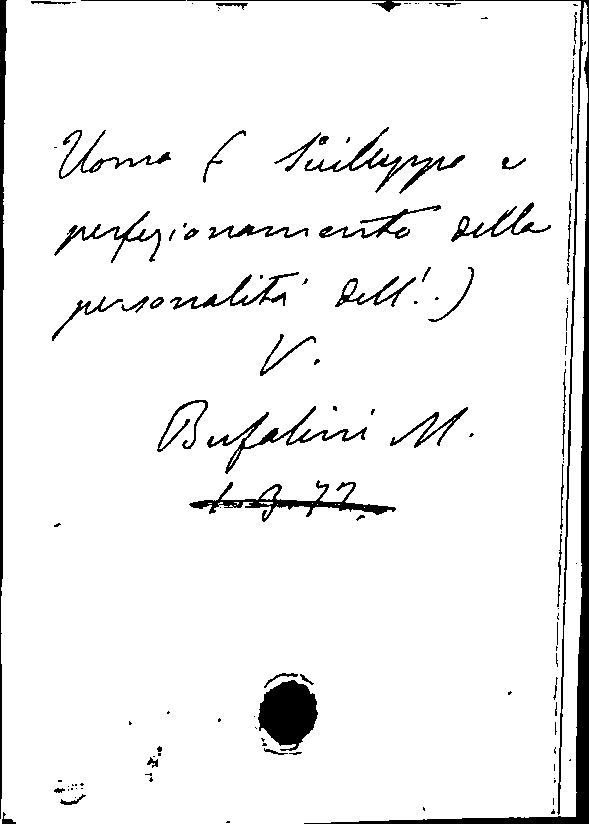 Uomo (Sviluppo e
perfezionamento della
personalità dell'..)
V.
Bufalini M.
1.3.77.